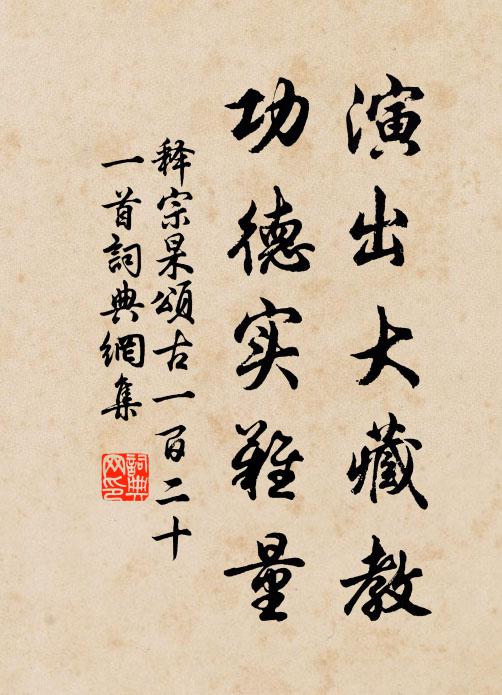 演出大藏教
功德实难量
释宗杲頌古一百二十
一首詞典網集
詞典网印